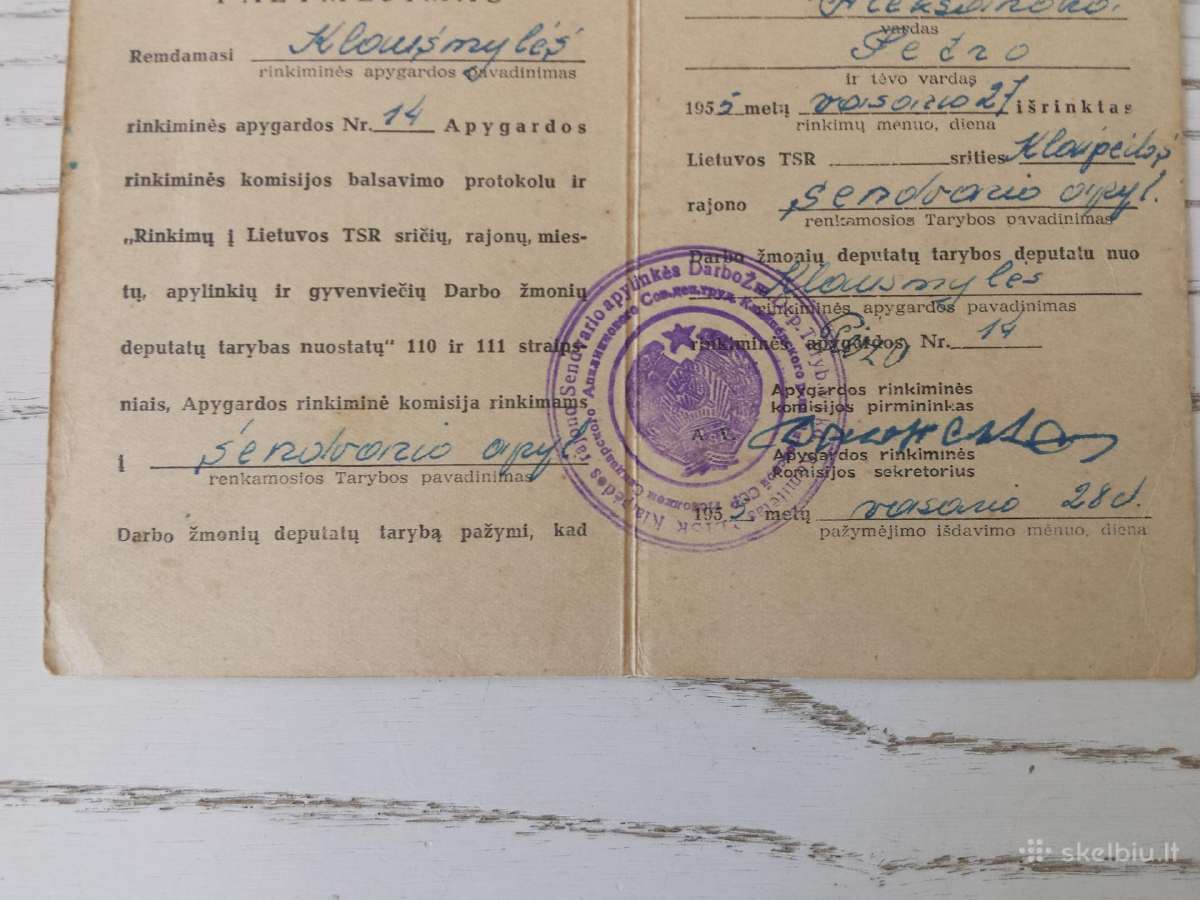 PAŽYMĖJIMAS
Remdamasi Klausmylės
rinkiminės apygardos pavadinimas
rinkiminės apygardos Nr. 14 Apygardos
rinkiminės komisijos balsavimo protokolu ir
„Rinkimų į Lietuvos TSR sričių, rajonų, mies-
tų, apylinkių ir gyvenviečių Darbo žmonių
deputatų tarybas nuostatų“ 110 ir 111 straips-
niais, Apygardos rinkiminė komisija rinkimams
į Sendvario apyl
renkamosios Tarybos pavadinimas
Darbo žmonių deputatų tarybą pažymi, kad
vardas
Petro
ir tėvo vardas
1955 metų vasario 27 išrinktas
rinkimų mėnuo, diena
Lietuvos TSR srities Klaipėdos
rajono Sendvario apyl.
renkamosios Tarybos pavadinimas
Darbo žmonių deputatų tarybos deputatu nuo
Klausmylės
rinkiminės apygardos pavadinimas
rinkiminės apygardos Nr. 14
Apygardos rinkiminės
komisijos pirmininkas
A. V.
Apygardos rinkiminės
komisijos sekretorius
1955 metų vasario 28 d.
pažymėjimo išdavimo mėnuo, diena
Klaipėdos rajono Sendvario apylinkės Darbo Žm. Dep. Tarybos
skelbiu.lt